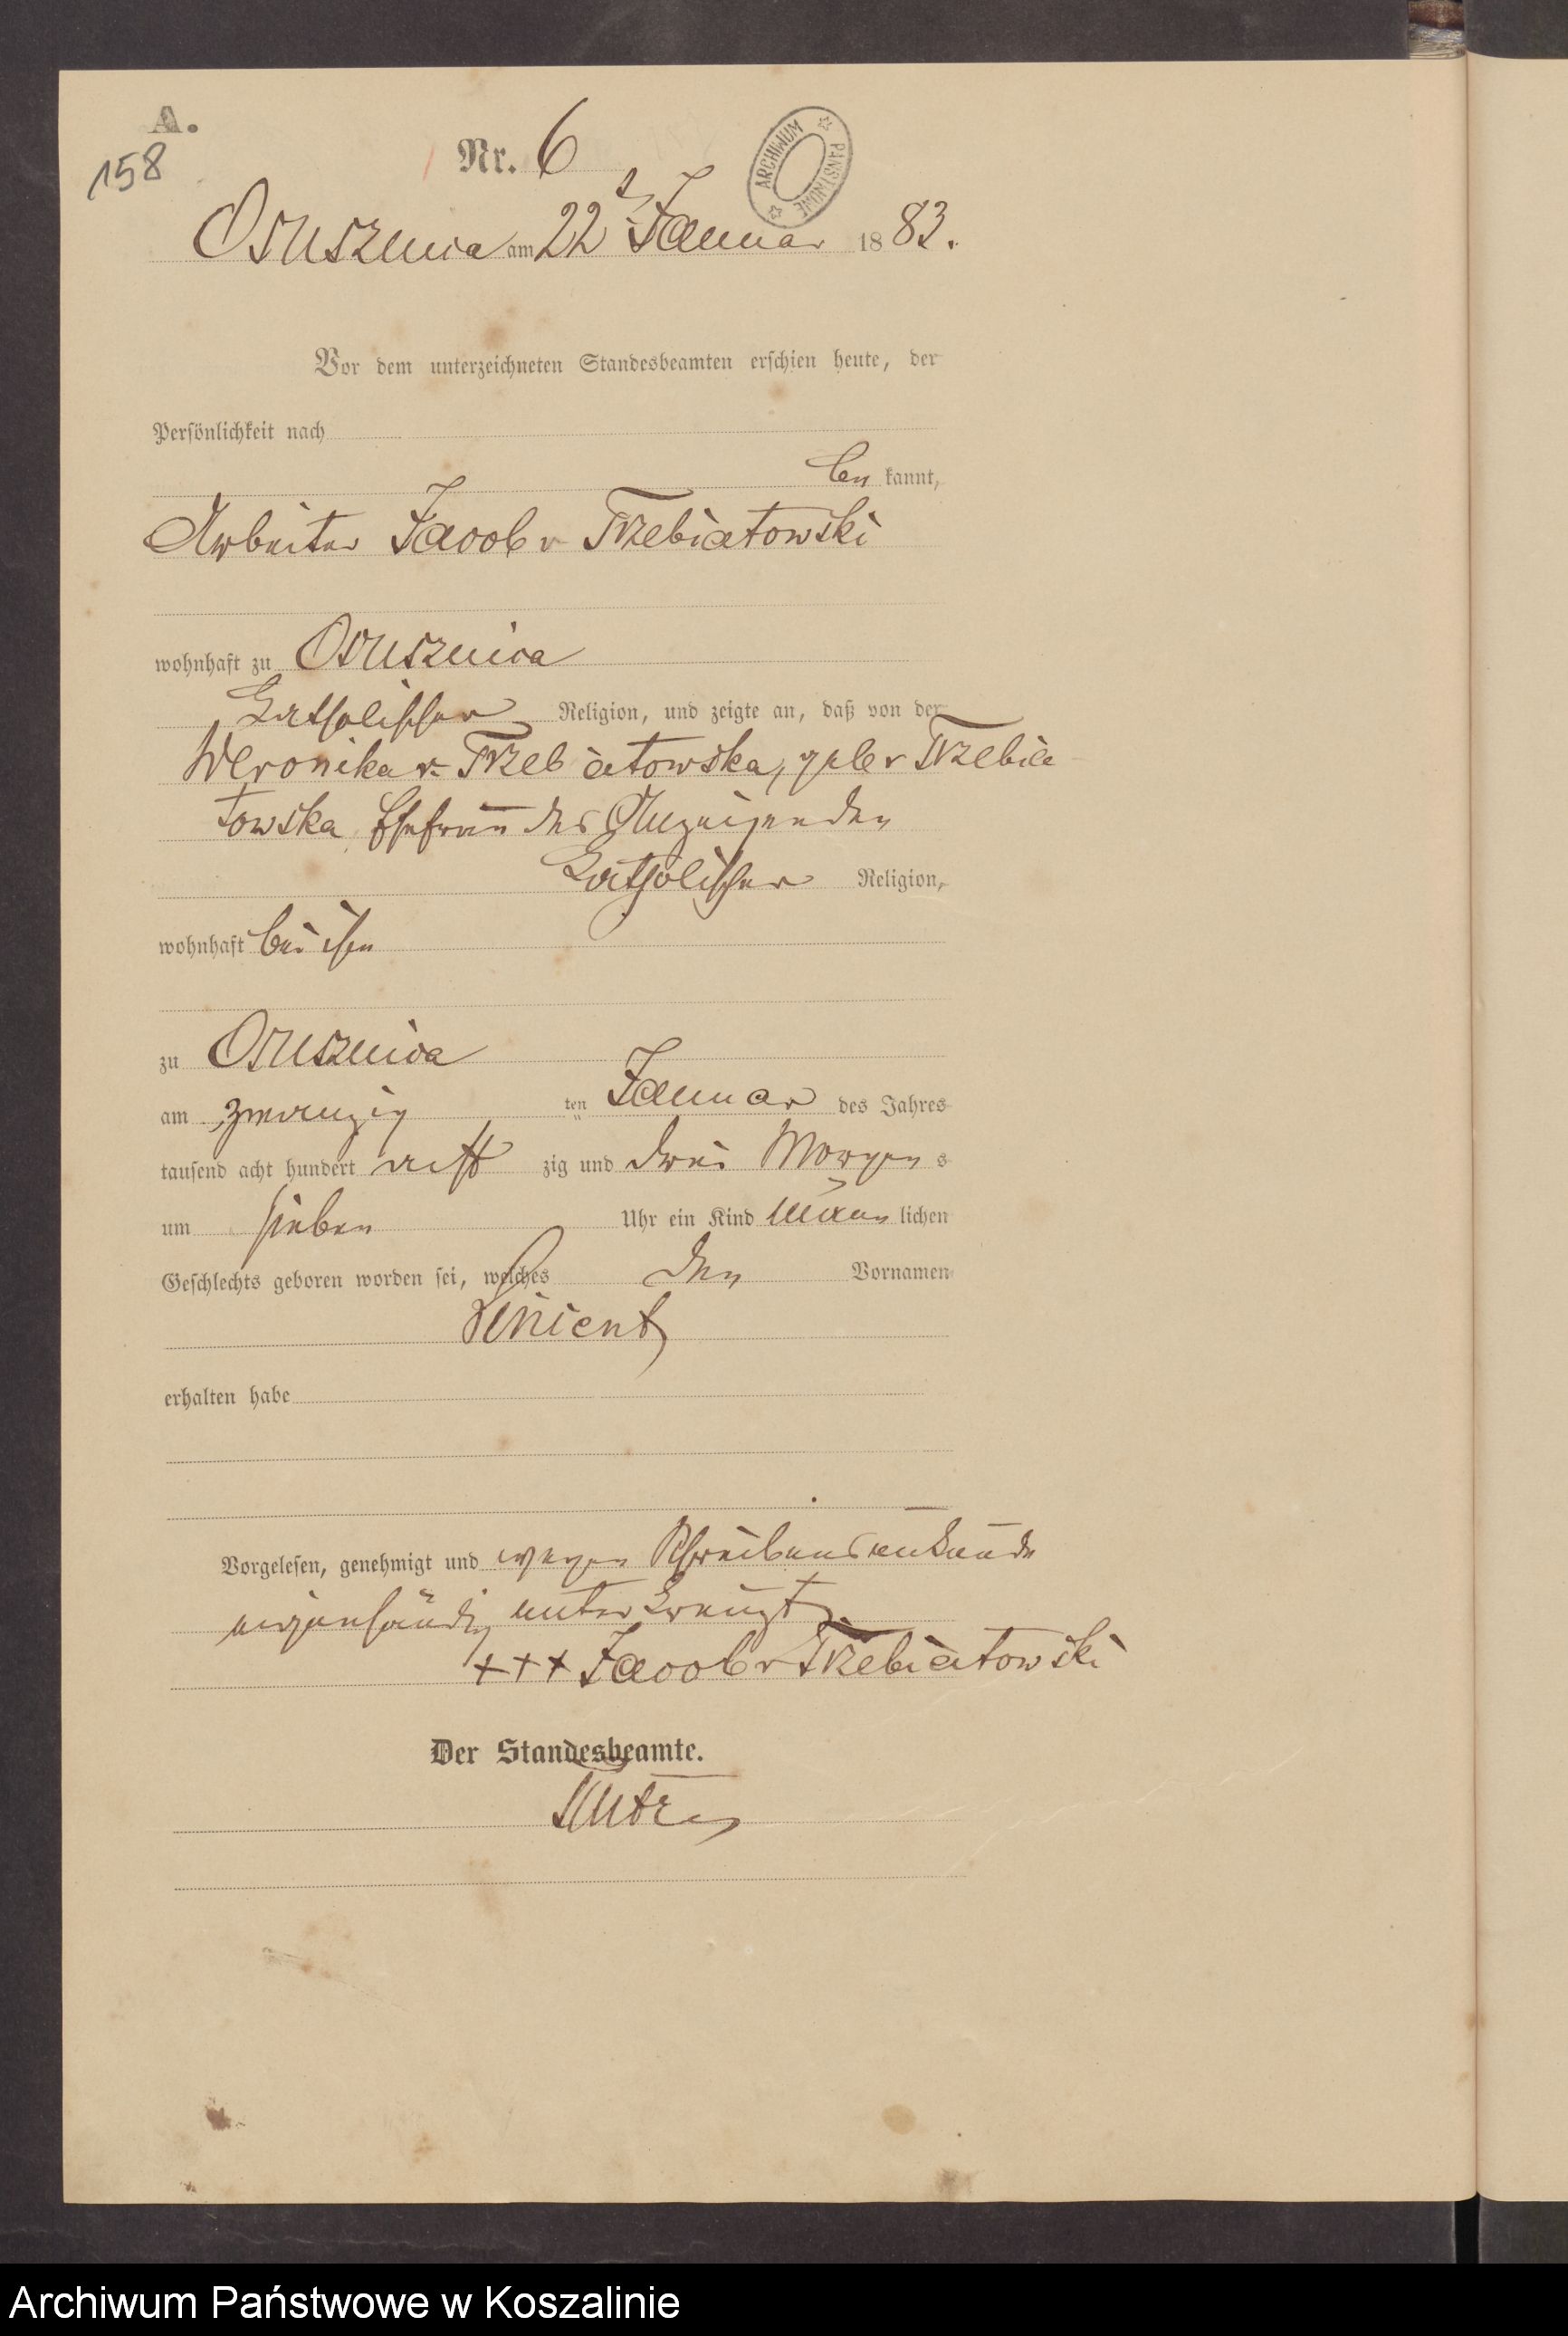 A.
158
Nr. 6
ARCHIWUM PAŃSTWOWE
Osusznica am 22 ten Januar 1883.
Vor dem unterzeichneten Standesbeamten erschien heute, der
Persönlichkeit nach
be kannt,
Arbeiter Jacob v Trzebiatowski
wohnhaft zu Osusznica
Katholischer Religion, und zeigte an, daß von der
Weronika v. Trzebiatowska, geb v Trzebia
towska Ehefrau des Anzeigenden
Katholischer Religion,
wohnhaft bei ihm
zu Osusznica
am zwanzig ten Januar des Jahres
tausend acht hundert acht zig und drei Morgens
um sieben Uhr ein Kind männ lichen
Geschlechts geboren worden sei, welches den Vornamen
erhalten habe
Vorgelesen, genehmigt und wegen Schreibensunkunde
eigenhändig unterkreuzt.
+++ Jacob v Trzebiatowski
Der Standesbeamte.
Archiwum Państwowe w Koszalinie